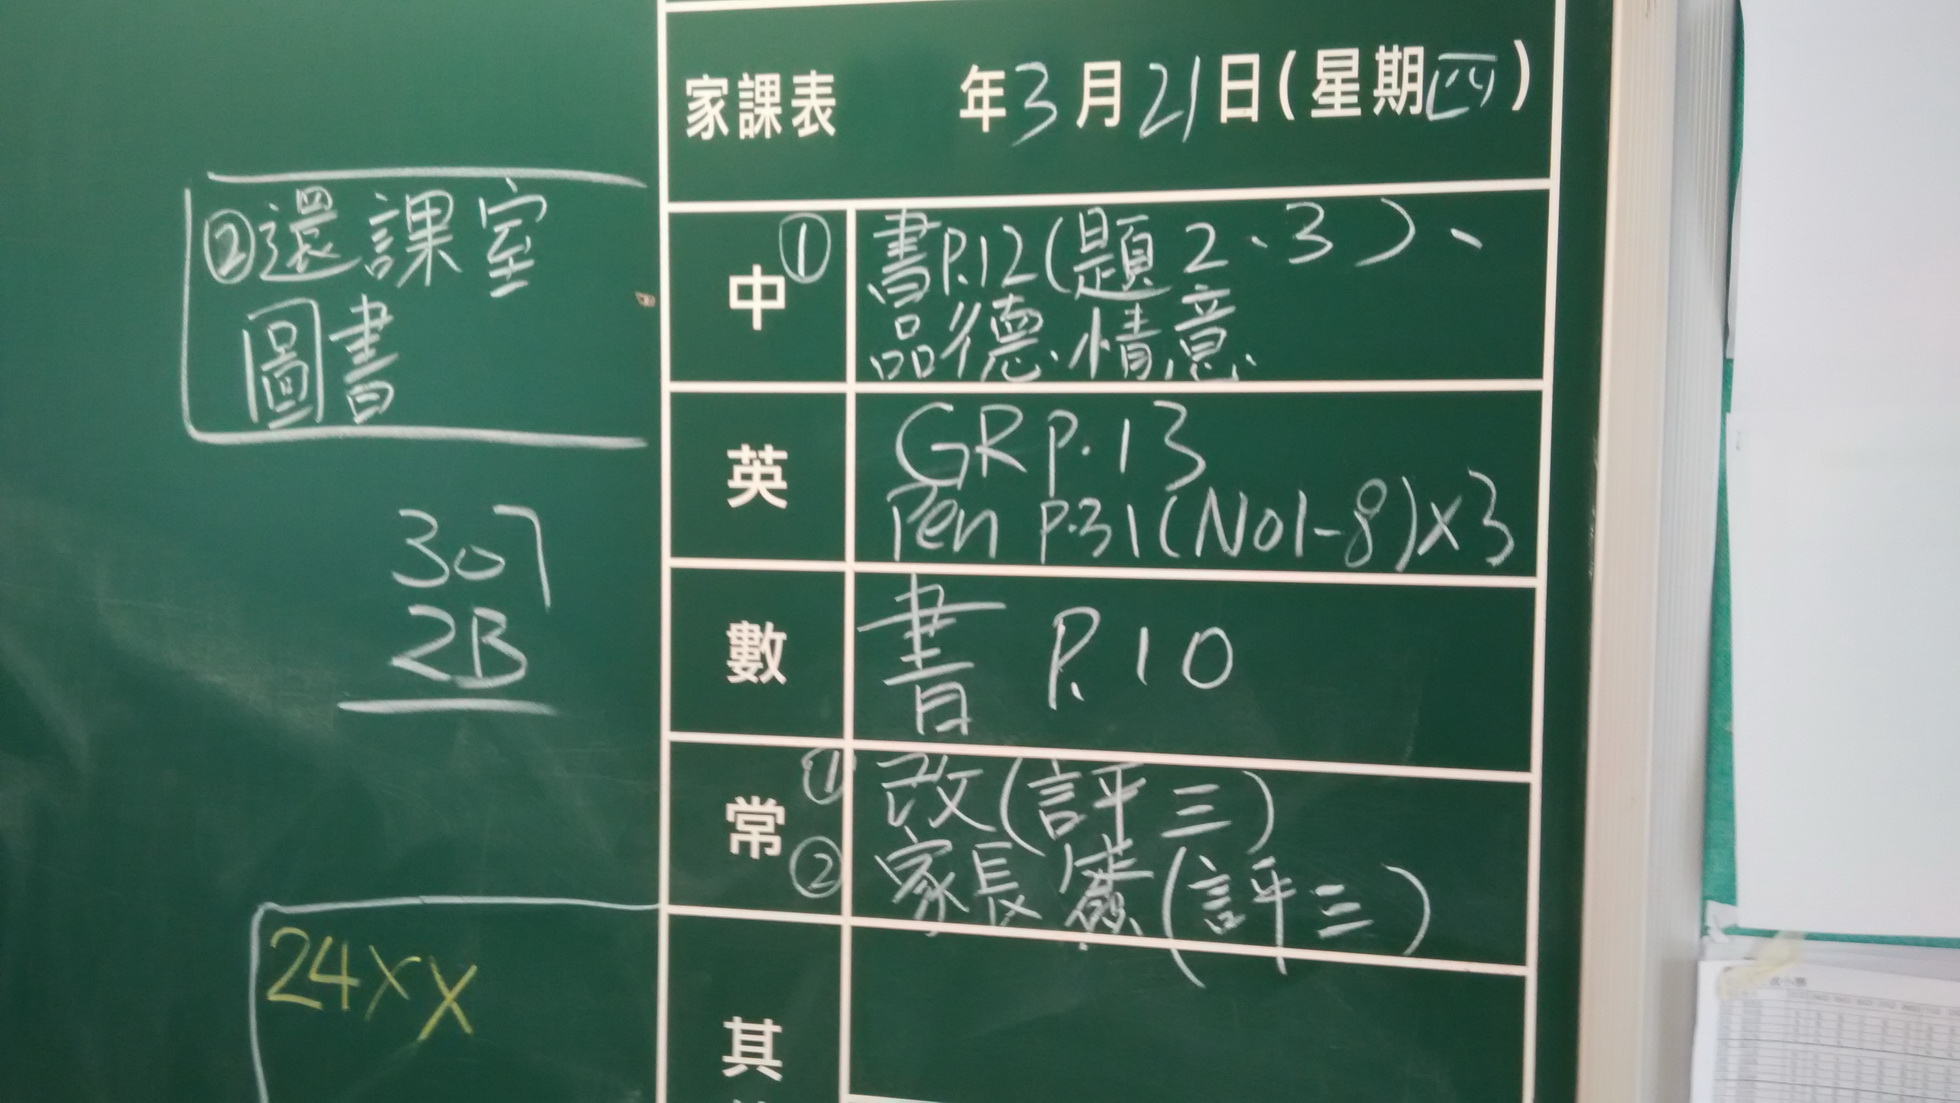 家課表 年3月21日(星期四)
②還課室
圖書
中 ① 書P.12(題2、3)、
品德.情意.
英 GR P.13
Pen P.31(No1-8)x3
307
2B
數 書 P.10
常 ① 改(評三)
② 家長簽(評三)
24xx
其